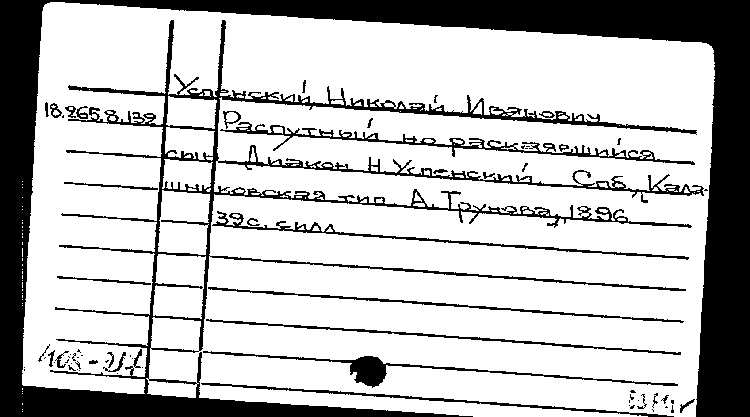 Успенский, Николай Иванович
18.265.8.139 Распутный но раскаявшийся
сын. Диакон Н. Успенский. Спб., Кала-
шниковская тип. А. Трунова, 1896
39с. силл.
108-217